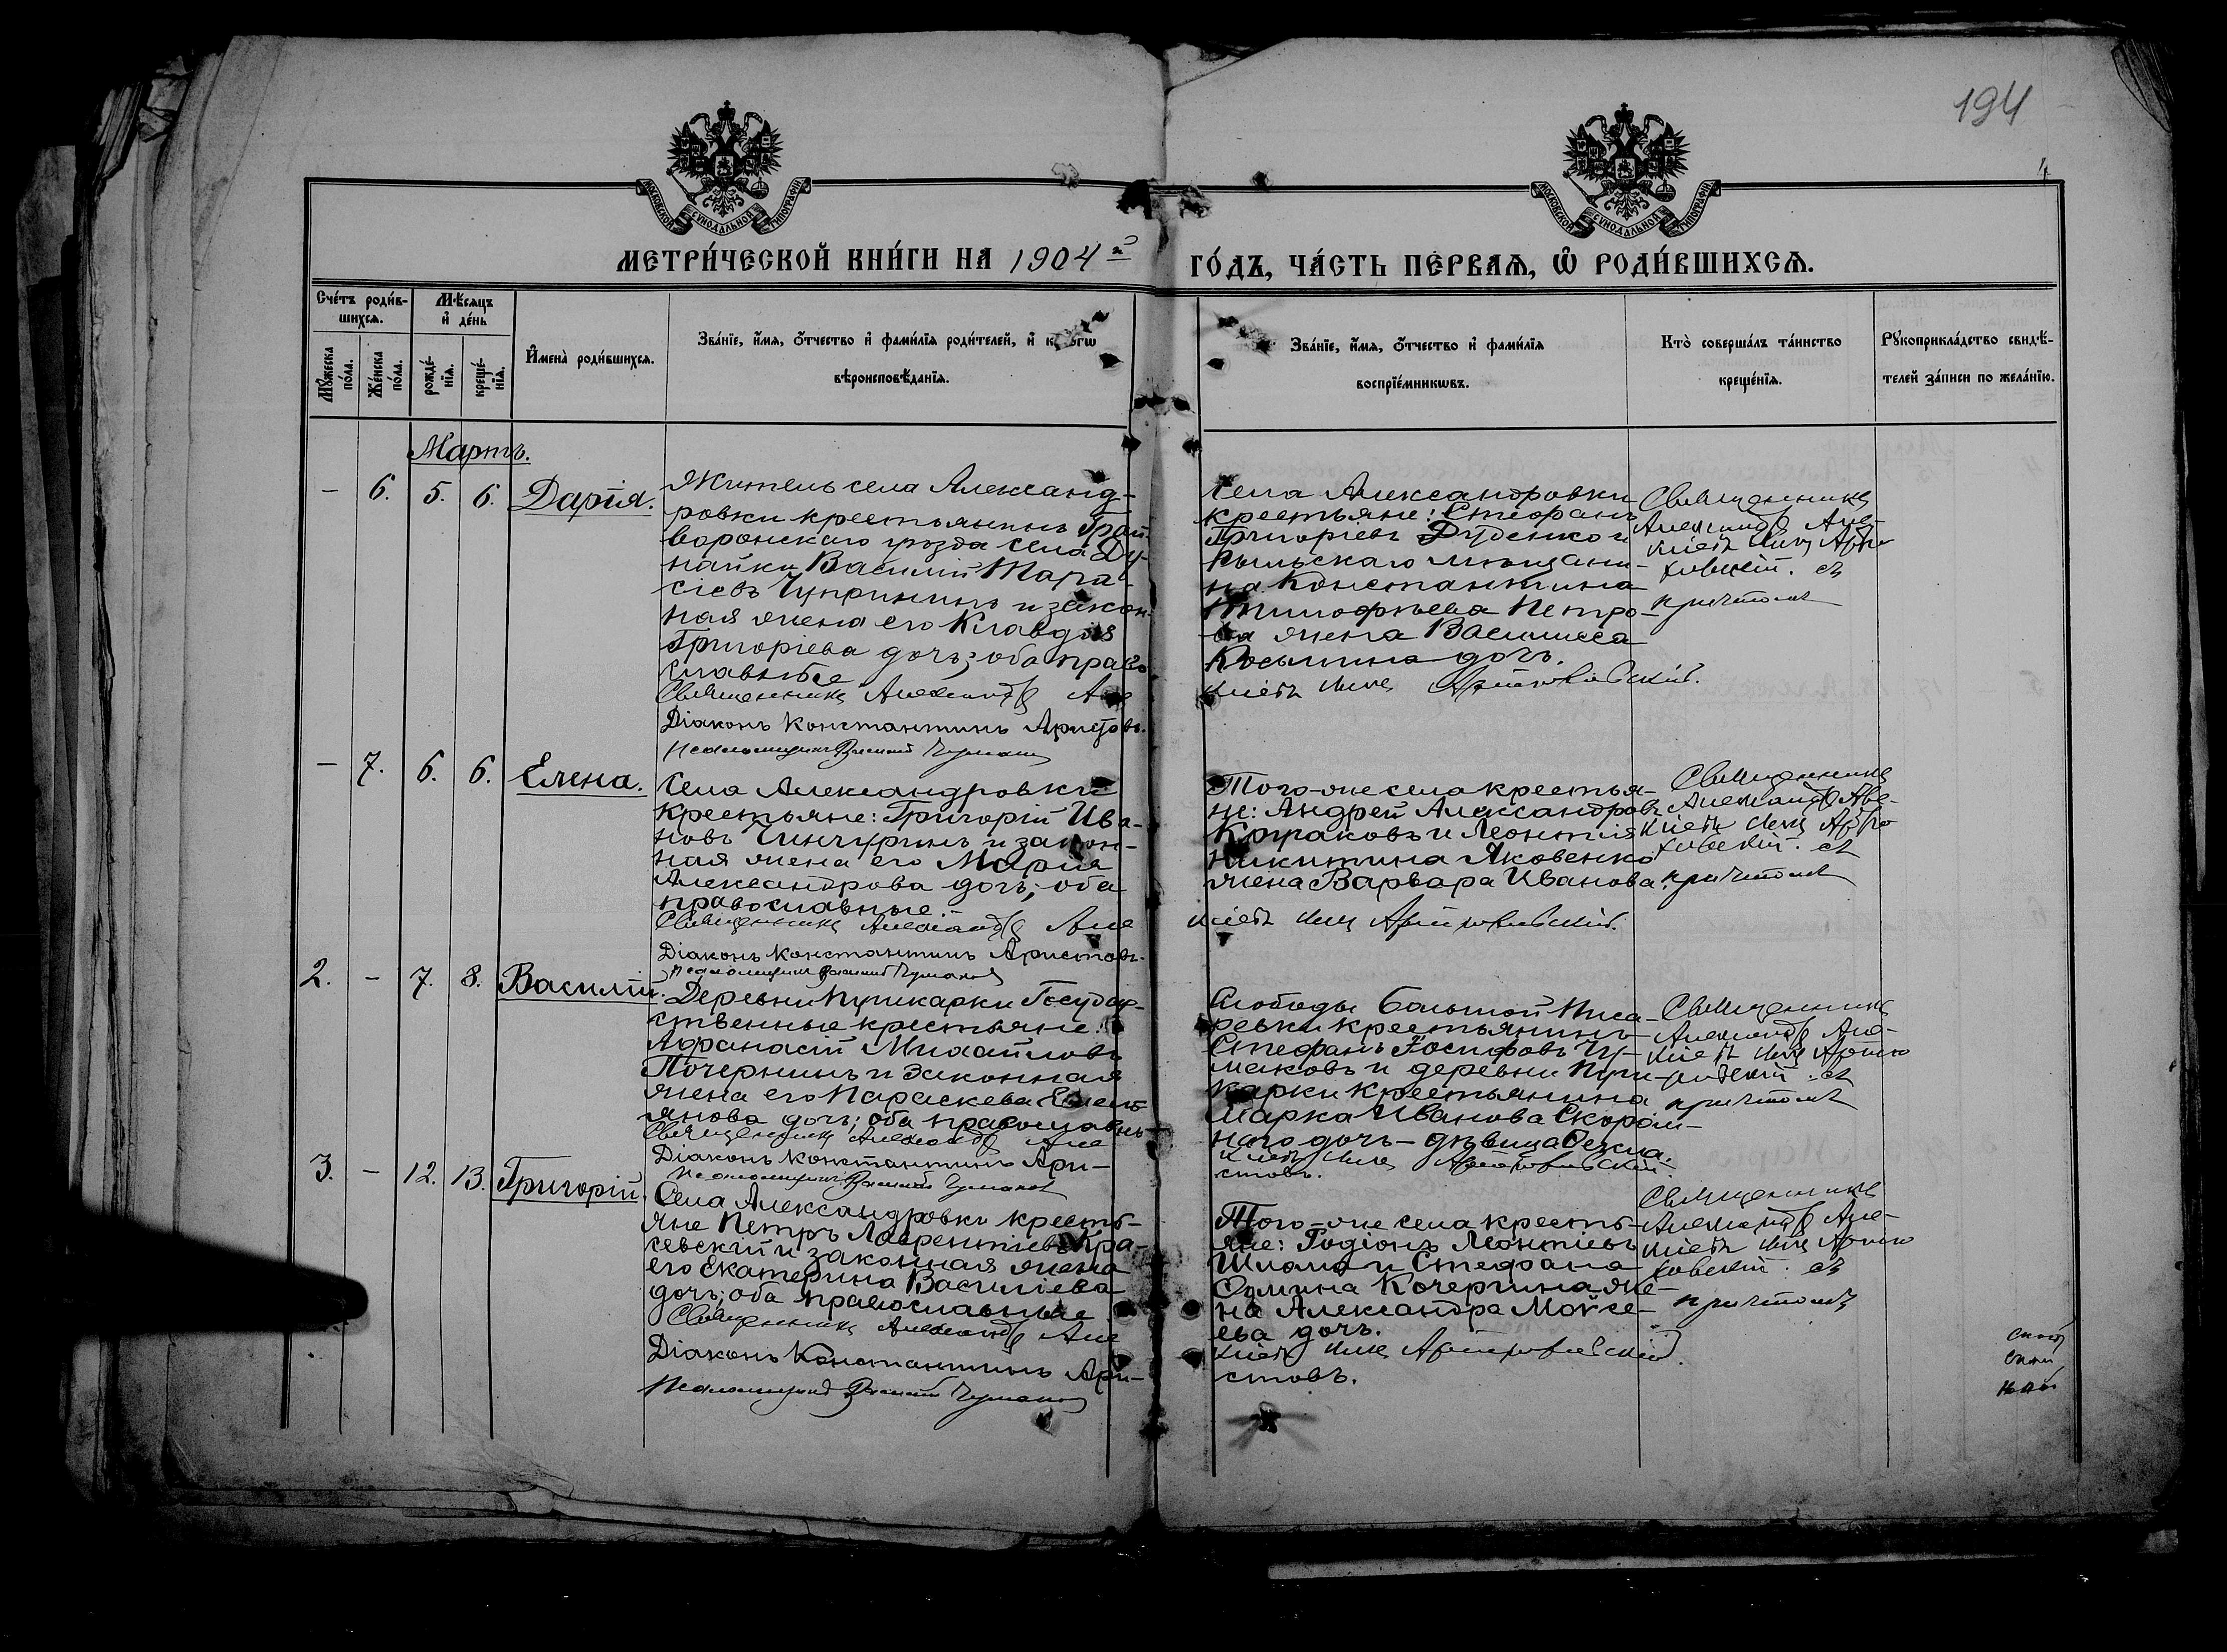 194
МОСКОВСКОЙ СУНОДАЛЬНОЙ ТИПОГРАФІИ
МОСКОВСКОЙ СУНОДАЛЬНОЙ ТИПОГРАФІИ
МЕТРИ́ЧЕСКОЙ КНИ́ГИ НА 1904й
ГО́ДЪ, ЧА́СТЬ ПЕ́РВАѦ, Ѡ҆ РОДИ́ВШИХСѦ.
Сче́тъ роди́в-
шихсѧ.
Мѣ́сѧцъ
и҆ де́нь
Мꙋ́жеска по́ла.
Же́нска по́ла.
рожде́-
нїѧ.
креще́-
нїѧ.
И҆мена̀ роди́вшихсѧ.
Зва́нїе, и҆́мѧ, ѻ҆́тчество и҆ фами́лїѧ роди́телей, и҆
вѣроисповѣ́данїѧ.
Зва́нїе, и҆́мѧ, ѻ҆́тчество и҆ фами́лїѧ
воспрїе́мникѡвъ.
Кто̀ соверша́лъ та́инство
креще́нїѧ.
Рꙋкоприкла́дство свидѣ́-
телей за́писи по жела́нїю.
Мартъ.
– 6. 5. 6. Дарія.
Житель села Александ-
ровки крестьянинъ Грай-
воронскаго уѣзда села Ду-
найки Василій Тара-
сіевъ Чупрининъ и закон-
ная жена его Клавдія
Григоріева дочь; оба право
славные
Священникъ Александръ Але
Діаконъ Константинъ Аристовъ.
Псаломщикъ Василій Чумаковъ
Села Александровки
крестьяне: Стефанъ
Григоріевъ Дуденко и
Рыльскаго мѣщани-
на Константина
Тимофѣева Петро-
ва жена Василисса
Косьмина дочь.
Священникъ
Александръ Але-
съ
причтомъ
– 7. 6. 6. Елена.
Села Александровки
крестьяне: Григорій Ива-
новъ Чинчуринъ и закон-
ная жена его Марія
Александрова дочь; оба
православные.
Священникъ Александръ Але
Діаконъ Константинъ Аристовъ.
Псаломщикъ Василій Чумаковъ
Того-же села крестья-
не: Андрей Александровъ
и Леонтія
Никитина Яковенко
жена Варвара Иванова.
Священникъ
Александръ Але-
съ
причтомъ
2. – 7. 8. Василій.
Деревни Пушкарки Государ-
ственные крестьяне:
Афанасій Михайловъ
Почернинъ и законная
жена его Параскева Емель-
янова дочь; оба православны
Священникъ Александръ Але
Діаконъ Константинъ Ари-
Псаломщикъ Василій Чумаковъ
Слободы Большой Писа-
ревки крестьянинъ
Стефанъ Іосифовъ Чу-
маковъ и деревни Пуш-
карки крестьянина
Марка Иванова Скорой-
наго дочь – дѣвица Ѳекла.
стовъ.
Священникъ
Александръ Але-
съ
причтомъ
3. – 12. 13. Григорій.
Села Александровки кресть-
яне Петръ Лаврентіевъ Кра-
севскій и законная жена
его Екатерина Василіева
дочь; оба православные
Священникъ Александръ Але
Діаконъ Константинъ Ари-
Псаломщикъ Василій Чумаковъ
Того-же села кресть-
яне: Родіонъ Леонтіевъ
и Стефана
Фомина Кочергина же-
на Александра Моисе-
ева дочь.
стовъ.
Священникъ
Александръ Але-
съ
причтомъ